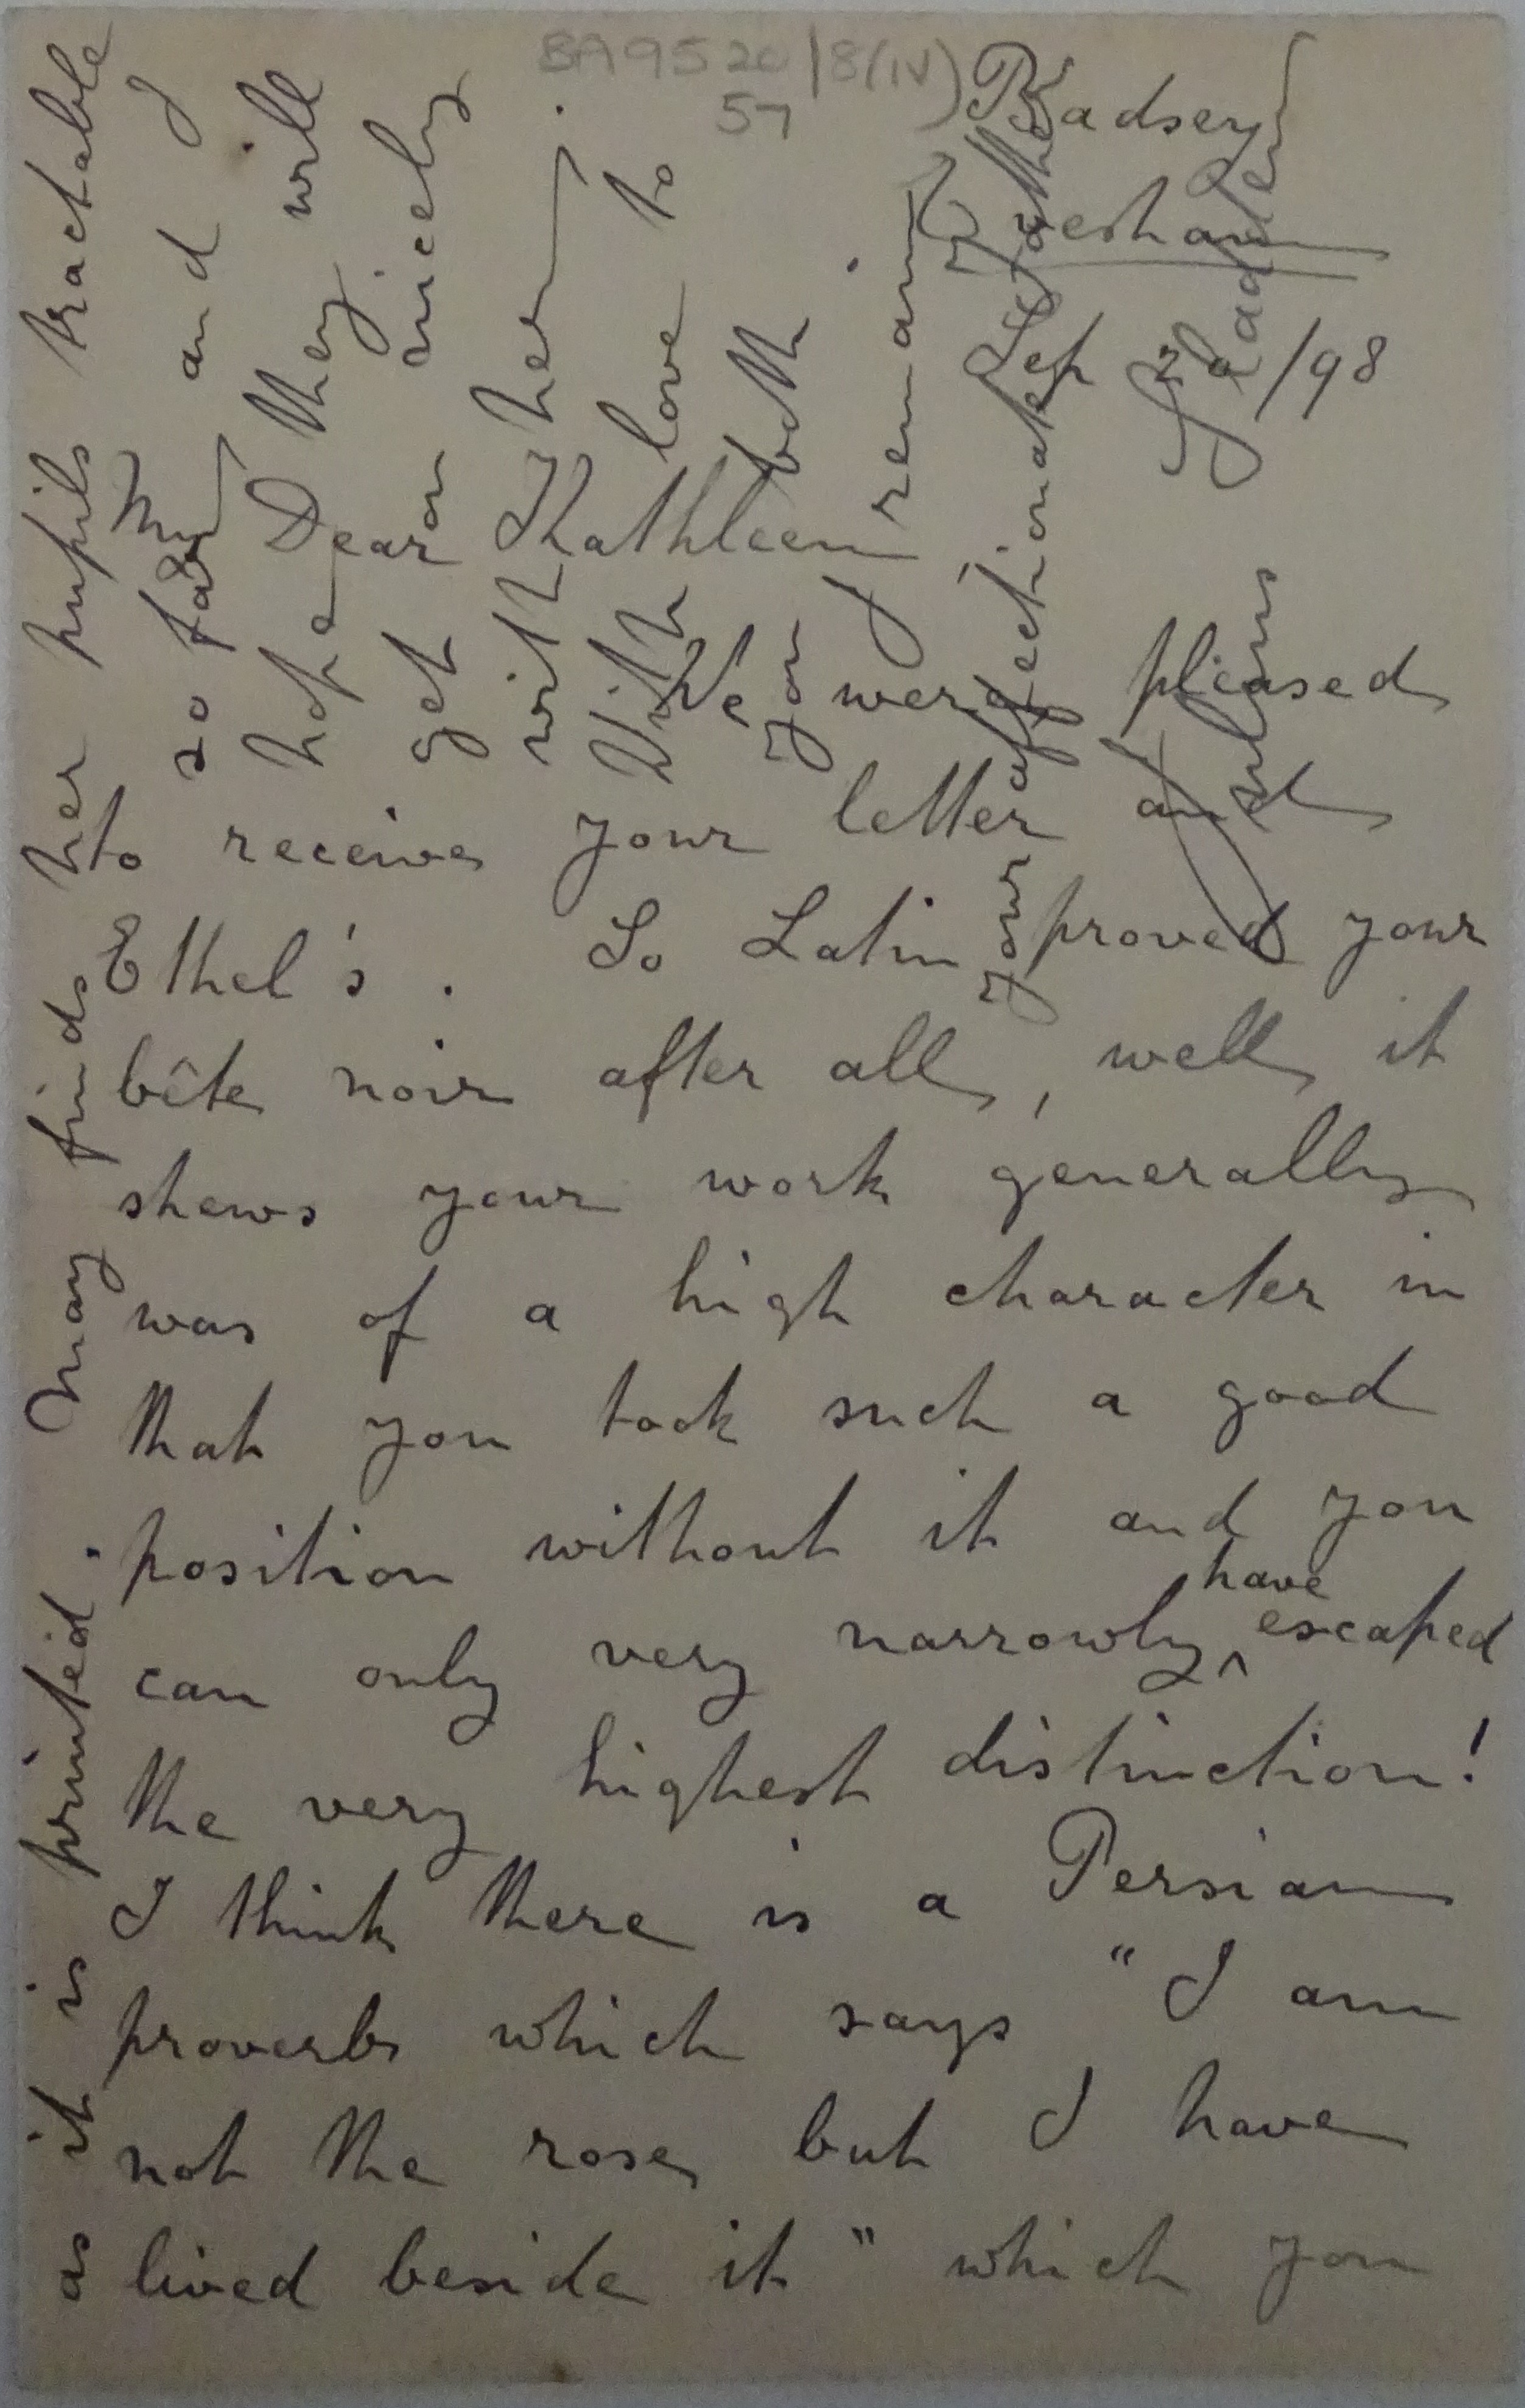 BA9520/8(IV)
57
Badsey
Evesham
Sep 20/98
My Dear Kathleen
We were pleased
to receive your letter and
Ethel's. So Latin proved your
bête noir after all, well it
shews your work generally
was of a high character in
that you took such a good
position without it and you
can only very narrowly ^have escaped
the very highest distinction!
I think there is a Persian
proverb which says "I am
not the rose but I have
lived beside it" which you
as it is printed. May finds her pupils tractable
so far and I
hope they will
get on nicely
with her.
With love to
you both
I remain,
Your affectionate Father
Julius Sladden